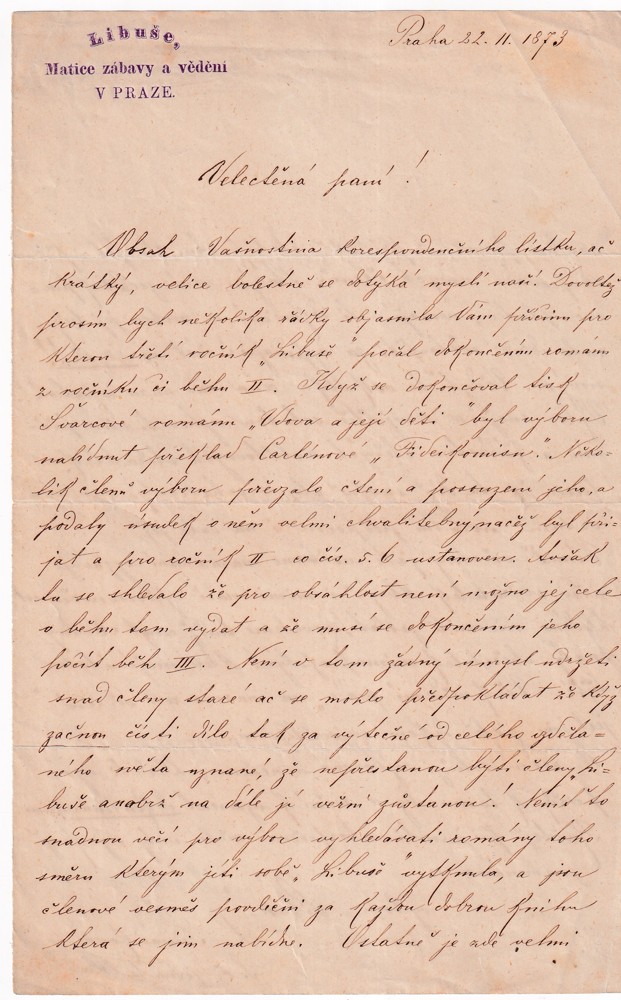 Libuše,
Matice zábavy a vědění
V PRAZE.
Praha 22. 11. 1873
Velectěná paní!
Obsah Vašnostina korespondenčního lístku, ač
krátký, velice bolestně se dotýká myslí naší. Dovoltež
prosím bych několika řádky objasnila Vám příčinu pro
kterou třetí ročník „Libuše" počal dokončením románu
z ročníku či běhu II. Když se dokončoval tisk
Švarcové románu „Vdova a její děti" byl výboru
nabídnut překlad Carlénové „Fideikomisu". Něko-
lik členů výboru převzalo čtení a posouzení jeho, a
podaly úsudek o něm velmi chvalitebný, načež byl při-
jat a pro ročník II co čís. 5. 6 ustanoven. Avšak
tu se shledalo že pro obsáhlost není možno jej cele
v běhu tom vydat a že musí se dokončením jeho
počít běh III. Není v tom žádný úmysl udržeti
snad členy staré ač se mohlo předpokládat že když
začnou čísti dílo tak za výtečné od celého vzděla-
ného světa uznané, že nepřestanou býti členy „Li-
buše anobrž na dále jí věrni zůstanou! Neníť to
snadnou věcí pro výbor vyhledávati romány toho
směru kterým jíti sobě „Libuše" vytknula, a jsou
členové vesměs povděčni za každou dobrou knihu
která se jim nabídne. Ostatně je zde velmi